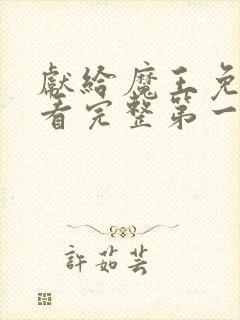 獻給魔王免
看完整第一
許茹芸